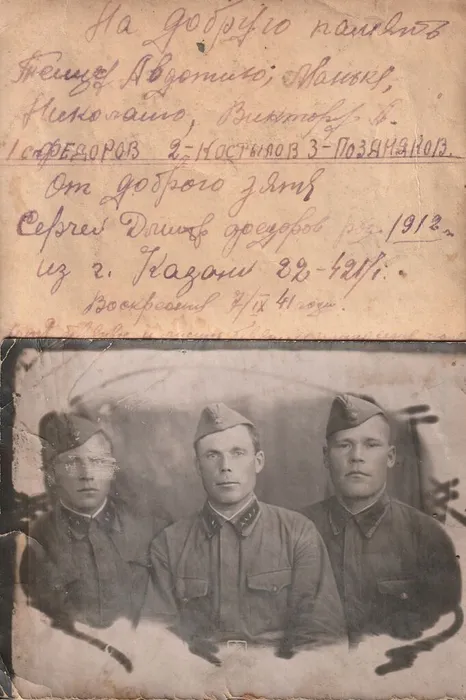 На добрую память
Авдотию, Маньке,
Николаю, Виктору
1 ФЕДОРОВ 2-КОСТЫЛОВ 3-ПОЗДНЯКОВ.
От доброго зятя
Сергей Дмит федоров роз. 1912
из г. Казани 22-
Воскресения 7/IX 41 года.